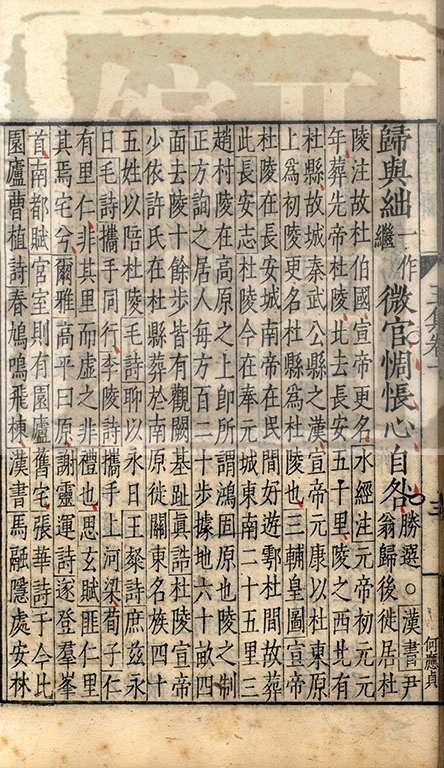 歸與絀一作繼微官惆悵心自各勝選○漢書尹
翁歸後徙居杜
陵注故杜伯國宣帝更名水經注元帝初元元
年葬先帝杜陵北去長安五十里陵之西北有
杜縣故城秦武公縣之漢宣帝元康以杜東原
上爲初陵更名杜縣爲杜陵也三輔皇圖宣帝
杜陵在長安城南帝在民間好遊鄠杜間故葬
此長安志杜陵今在奉元城東南二十五里三
趙村陵在高原之上卽所謂鴻固原也陵之制
正方詢之居人每方百二十步據地六十畝四
面去陵十餘步皆有觀闕基趾眞誥杜陵宣帝
少依許氏在杜縣葬於南原徙關東名族四十
五姓以陪杜陵毛詩聊以永日王粲詩庶茲永
日毛詩攜手同行李陵詩攜手上河梁荀子仁
有里仁非其里而虛之非禮也思玄賦匪仁里
其焉宅兮爾雅高平曰原謝靈運詩遂登羣峯
首南都賦宮室則有園廬舊宅張華詩于今比
園廬曹植詩春鳩鳴飛棟漢書馬融隱處安林
何應貞